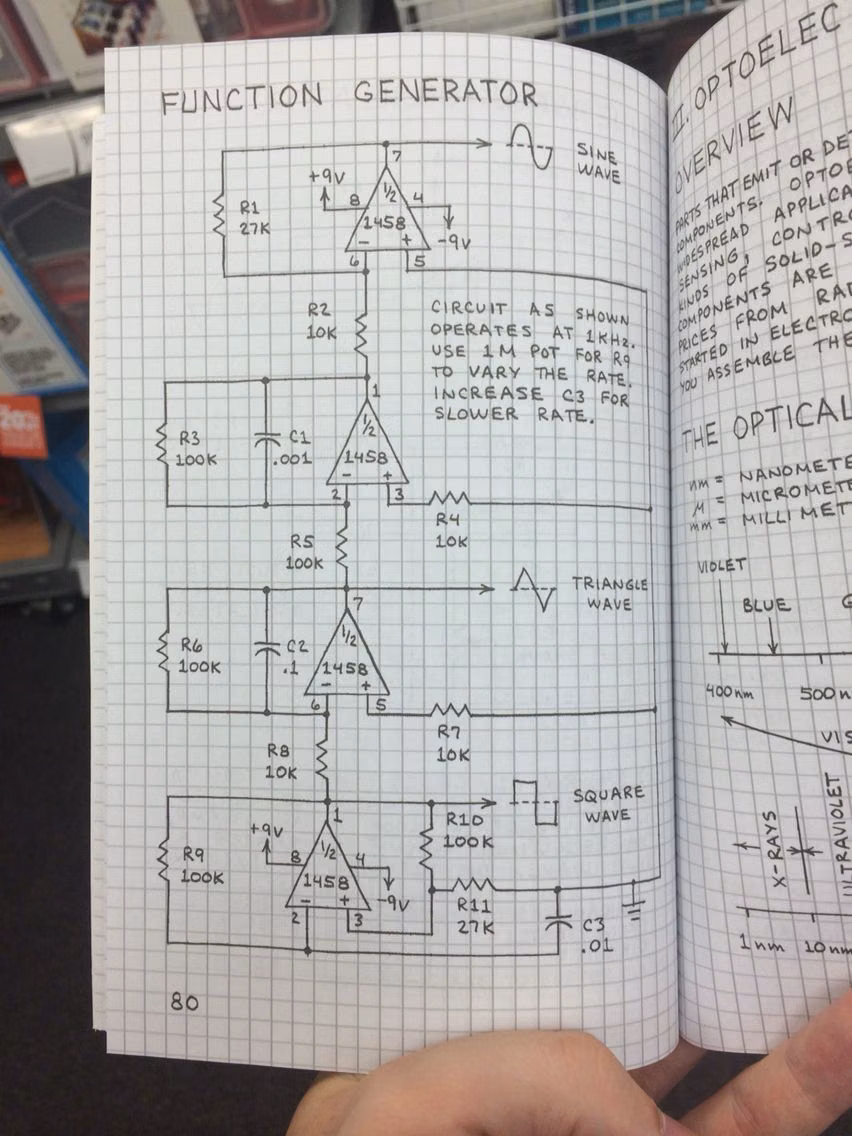 FUNCTION GENERATOR
7
SINE
WAVE
+9V
1/2
8
4
R1
27K
1458
-9V
-
+
6
5
R2
10K
CIRCUIT AS SHOWN
OPERATES AT 1KHz.
USE 1M POT FOR R9
TO VARY THE RATE.
INCREASE C3 FOR
SLOWER RATE.
1
1/2
R3
100K
C1
.001
1458
-
+
2
3
R4
10K
R5
100K
TRIANGLE
WAVE
7
1/2
R6
100K
C2
.1
1458
-
+
6
5
R7
10K
R8
10K
SQUARE
WAVE
1
R10
100K
+9V
1/2
8
4
R9
100K
1458
-9V
-
+
2
3
R11
27K
C3
.01
80
II. OPTOELEC
OVERVIEW
PARTS THAT EMIT OR DE
COMPONENTS. OPTOE
WIDESPREAD APPLICA
SENSING, CONTRO
KINDS OF SOLID-S
COMPONENTS ARE
PRICES FROM RAD
STARTED IN ELECTRO
YOU ASSEMBLE THE
THE OPTICAL
nm = NANOMETE
μ = MICROMETE
mm = MILLIMET
VIOLET
BLUE
G
400nm
500n
VIS
X-RAYS
ULTRAVIOLET
1nm
10nm